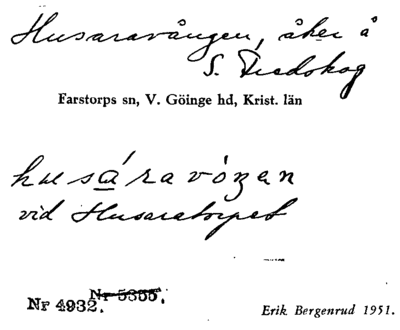 Husaravången, åker å
S. Fredskog
Farstorps sn, V. Göinge hd, Krist. län
husáravóŋen
vid Husaretorpet
Nr 5355.
Nr 4932.
Erik Bergenrud 1951.